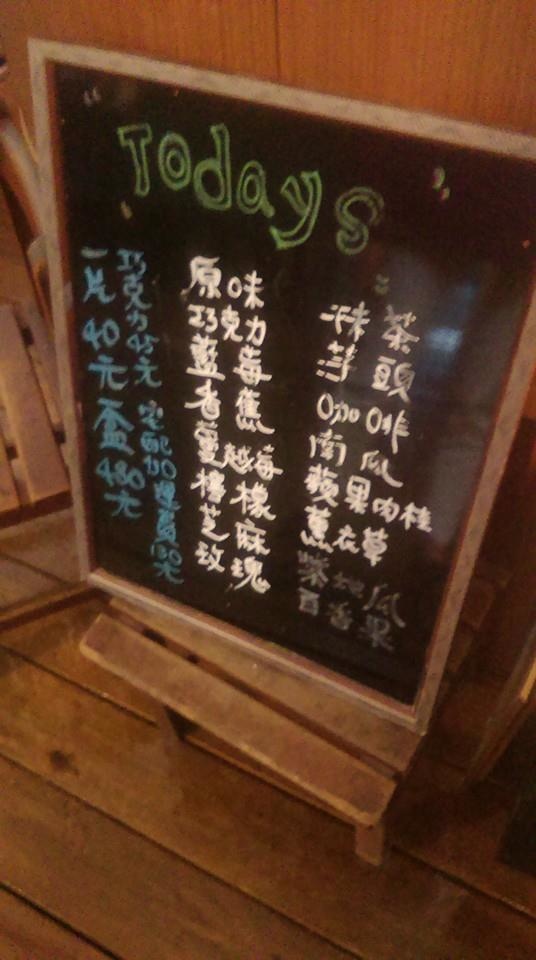 Todays
抹茶
芋頭
咖啡
南瓜
蘋果肉桂
薰衣草
百香果
原味
巧克力
藍莓
香蕉
蔓越莓
檸檬
芝麻
玫瑰
巧克力45元
一片40元
宅配加運費130元
一盒480元